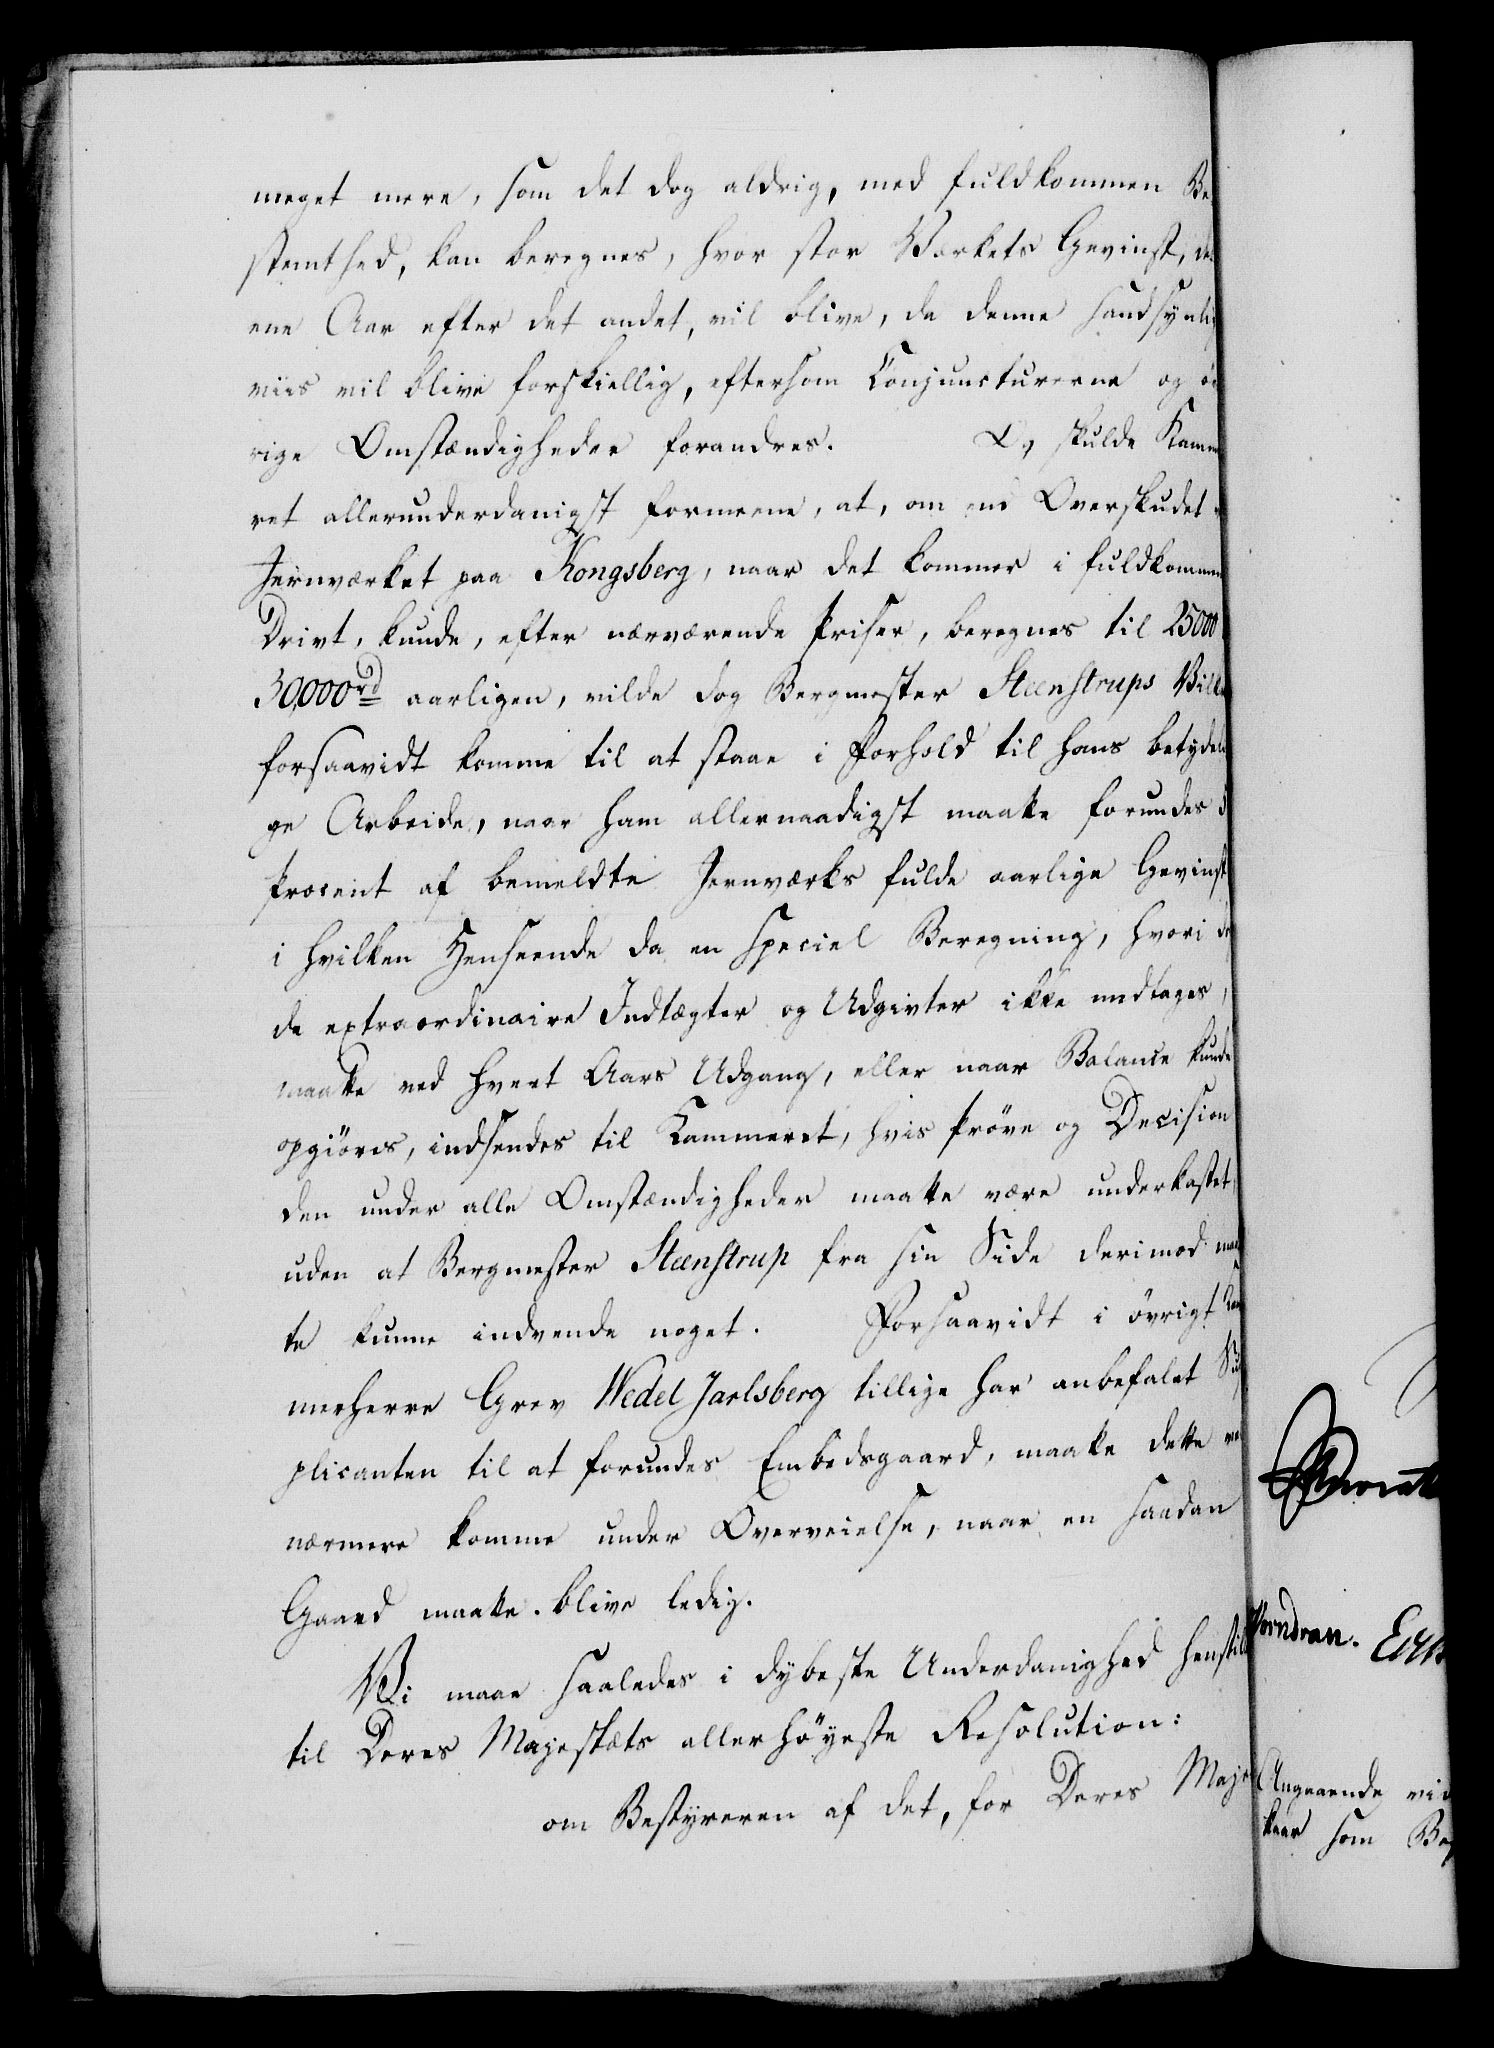 meget mere, som det dog aldrig, med fuldkommen Be
stemthed, kan beregnes, hvor stor Værkets Gevinst, det
ene Aar efter det andet, vil blive, da denne sandsynlig
viis vil blive forskiellig, eftersom Conjuncturerne og öv
rige Omstændigheder forandres. Og skulde Kamme
ret allerunderdanigst formeene, at, om end Overskudet
Jernværket paa Kongsberg, naar det kommer i fuldkommen
Drivt, kunde, efter nærværende Priser, beregnes til 25000
30,000rd aarligen, vilde dog Bergmester Steenstrups Vilk
forsaavidt komme til at staae i Forhold til hans betydeli
ge Arbeide, naar ham allernaadigst maatte forundes
Procent af bemeldte Jernværks fulde aarlige Gevinst
i hvilken Henseende da en speciel Beregning, hvori de
de extraordinaire Indtægter og Udgivter ikke undtages,
maatte ved hvert Aars Udgang, eller naar Balance kunde
opgiöres, indsendes til Kammeret, hvis Pröve og Decision
den under alle Omstændigheder maatte være underkastet,
uden at Bergmester Steenstrup fra sin Side derimod maa
te kunne indvende noget. Forsaavidt i övrigt Kam
merherre Grev Wedel Jarlsberg tillige har anbefalet Sup
plicanten til at forundes Embedsgaard, maatte dette
nærmere komme under Overveielse, naar en saadan
Gaard maatte blive ledig.
Vi maae saaledes i dybeste Underdanighed henstill
til Deres Majestæts allerhöyeste Resolution:
om Bestyreren af det, for Deres Maje
Vorndran.
Angaaende
kaar som Be